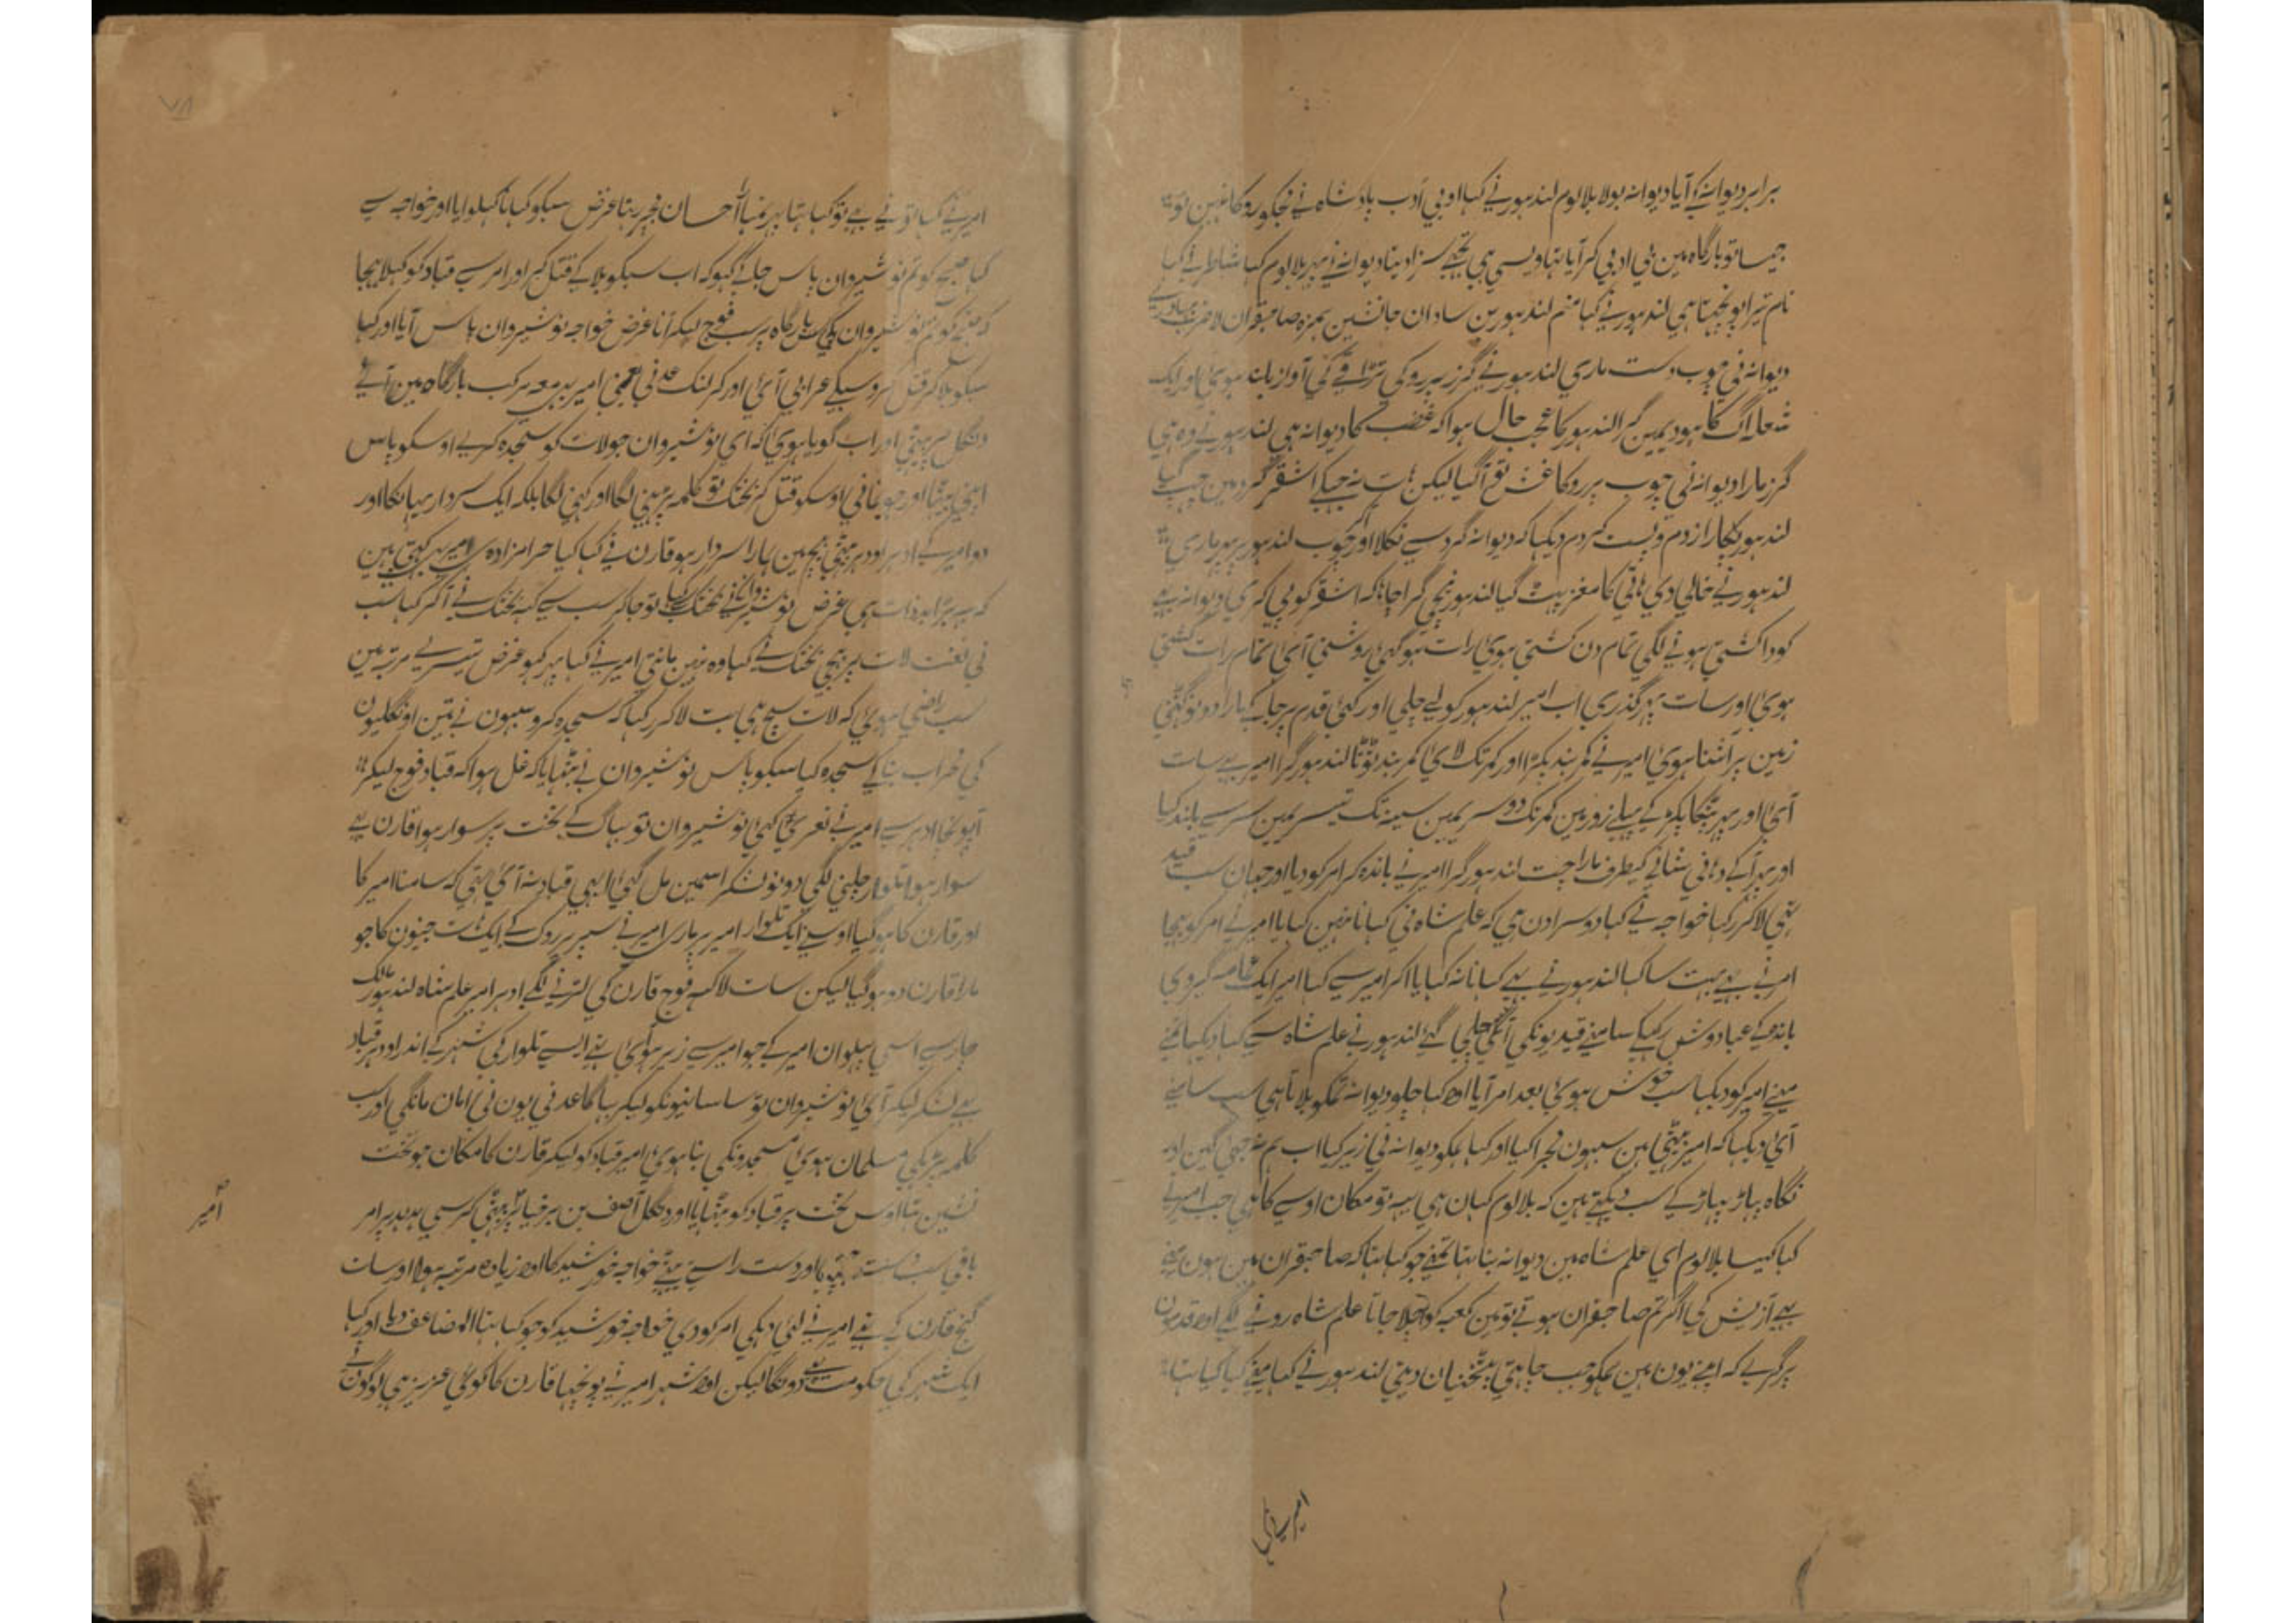 برابر دیوانے کے آیا دیوانہ بولا بلا لوم لندہور نے کہا او بی ادب بادشاہ نے تجکو روکا نہین تو
جیسا تو بارگاہ مین بی ادبی کر آیا تہا ویسی ہی تجہے سزا دیتا دیوانے نے پہر بلا لوم کہا شاطر نے کہا
نام تیرا پوچہتا ہی لندہور نے کہا منم لندہور بن سادان جانشین حمزہ صاحبقران لا ضرب
دیوانہ نی چوب دست ماری لندہور نے گرز پر روکی تڑاقے کی آواز بلند ہوئی اور ایک
شعلہ آگ کا لندہور کا عجب حال ہوا کہ غضب کا دیوانہ ہی لندہور نے وہ ہی
گرز مارا دیوانہ نی چوب پر روکا غش تو آ گیا لیکن گرد مین چہپ گیا
لندہور پکارا زدم و پست کردم دیکہا کہ دیوانہ گرد سے نکلا اور چوب لندہور پر پہر ماری
لندہور نے خالی دی ہاتی کا مغز پہٹ گیا لندہور نیچی گرا چاہا کہ اشقر کو پی کری دیوانہ بہے
کودا کشتی ہونے لگی تمام دن کشتی ہوئی رات ہو گہی روشنی آئی تمام رات کشتی
ہوئی اور سات پہر گذری اب امیر لندہور کو لے چلی اور کہی قدم پر جا کے مارا دونو گہٹنی
زمین پر آشنا ہوئی امیر نے کمر بند پکڑا اور کمر تک لائی کمر بند ٹوٹا لندہور گرا امیر بہے سات
آئی اور پہر پکڑ کے پہلے زور مین کمر تک دوسریمین سینہ تک تیسریمین سر سے بلند کیا
اور کیطرف مارا چت لندہور گرا امیر نے باندہ کر امر کو دیا اور جہان سب قید
تہی لا کر رکہا خواجہ نے کہا دوسرا دن ہی کہ علم شاہ نی کہانا نہین کہایا امیر نے امر کو بہیجا
امر نے بہے بہت سا کہا لندہور نے بہے کہانا نہ کہایا آ کر امیر سے کہا امیر ایک عمامہ
باندہ کے عبا دوش پر رکہکے سامنے قیدیونکی چلی گئے لندہور نے علم شاہ سے کہا دیکہا تمنے
مینے امیر کو دیکہا سب خوش ہوئی بعد امر آیا اور کہا چلو دیوانہ تمکو بلاتا ہی سب سامنے
آئی دیکہا کہ امیر بیٹہی ہین سبہون نے مجرا کیا اور کہا ہمکو دیوانہ نی زیر کیا اب ہم
نگاہ پہاڑ پہاڑ کے سب دیکہتے ہین کہ بلا لوم کہان ہی یہہ تو مکان اوسے کا ہی جب امیر نے
کہا کیسا بلا لوم ای علم شاہ مین دیوانہ بنا تہا تمنے جو کہا تہا کہ صاحبقران مین ہون
یہے آزمایش کی اگر تم صاحبقران ہوتے تو مین کعبہ کو چلا جاتا علم شاہ رونے لگے اور قدمون
پر گرے کہ اپنے یون ہین ہمکو جب چاہتی پٹخنیان دیتی لندہور نے کہا مینے کیا کیا تہا
امیر نے کہا
امیر نے کہا تو نے بہے تو کہا تہا پہر احسان عرض سبکو کہانا کہلوایا اور خواجہ سے
کہا صبح کو تم نوشیروان پاس جاکے کہو کہ اب سبکو بلاکے قتل کر اور امر سے قباد کو کہلا بہیجا
کہ صبح کو تم نوشیروان کی بارگاہ پر سب فوج لیکر آنا غرض خواجہ نوشیروان پاس آیا اور کہا
سبکو بلاکر قتل کرو سبکے عرابی آئی اور کرلنگ عدنی یعنی امیر بہے معہ مرکب بارگاہ مین آئے
دنگل پر بیٹہی اور اب گویا ہوئی کہ ای نوشیروان جو لات کو سجدہ کرے اوسکو پاس
اپنی بیٹہا اور جو نمانی اوسکو قتل کر بختک تو کلمہ پڑہنی لگا اور کہنی لگا بلکہ ایک سردار یہان کا اور
دو امیر کے ادہر اودہر بیٹہی بیچمین ہمارا سردار ہو قارن نے کہا کیا حرامزادہ امیر کہتی ہین
کہ یہہ بڑا بدذات ہی غرض نوشیروان نے بختک سے کہا تو جا کر سب سے کہہ بختک نے آ کر کہا سب
نی لعنت لات پر بہیجی بختک نے کہا وہ نہین مانتی امیر نے کہا پہر کہو غرض تیسرے مرتبہ مین
سب راضی ہوئی کہ لات سچ ہی بت لا کر رکہا کہ سجدہ کرو سبہون نے تین اونگلیون
کی محراب بناکے سجدہ کیا سبکو پاس نوشیروان نے بٹہایا کہ غل ہوا کہ قباد فوج لیکر
آ پونہچا ادہر سے امیر نے نعرے کہی نوشیروان تو بہاگ کے تخت پر سوار ہوا قارن بہے
سوار ہوا تلوار چلنی لگی دونو لشکر اسمین مل گہی ابہی قباد نہ آئی تہی کہ سامنا امیر کا
اور قارن کا ہو گیا اوسنے ایک تلوار امیر پر ماری امیر نے سپر پر روک کے ایک جنیون کا جو
مارا قارن دو ہو گیا لیکن سات لاکہہ فوج قارن کی لڑنے لگے ادہر امیر علم شاہ لندہور مالک
چار سے اسی پہلوان امیر کے جو امیر سے زیر ہوئی تہے ایسے تلوار کی شہر کے اندر اودہر قباد
بہے لشکر لیکر آئی نوشیروان تو ساسانیونکو لیکر بہاگا عدنی یون نی امان مانگی اور سب
کلمہ پڑہکی مسلمان ہوئی مسجدونکی بنا ہوئی امیر قباد کو لیکر قارن کا مکان جو تخت
نشین تہا اوس تخت پر قباد کو بٹہایا اور دنگل آصف بن برخیا پر بیٹہی کرسی ہدہد پر امر
باقی سب دست چپ اور دست راست بیٹہے خواجہ خورشید کا اور زیادہ مرتبہ ہوا اور سات
گنج قارن کے تہے امیر نے امر کو دی خواجہ خورشید کو جو کہا تہا المضاعف دیا اور کہا
ایک شہر کی حکومت دونگا لیکن اور شہر امیر نے پونچہا قارن کا کوئی عزیز ہی لوگون نے
امیر
۷۸